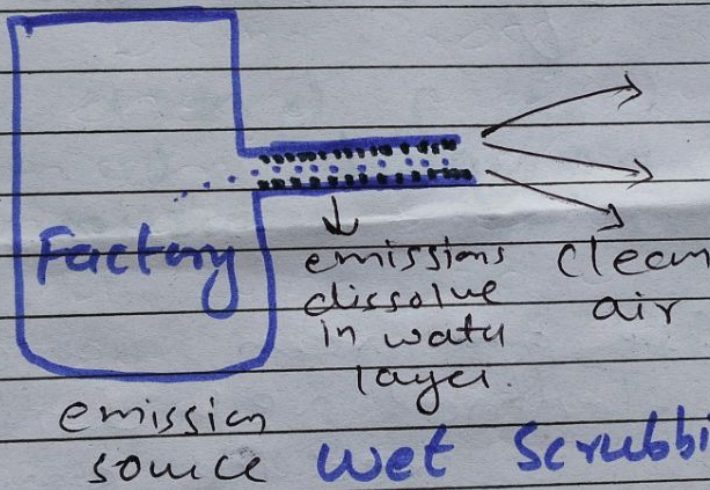 Factory
emissions
dissolve
in water
layer.
Clean
air
emission
source
Wet Scrubbi